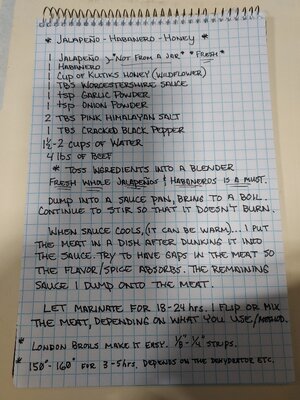 * JALAPEÑO - HABANERO - HONEY *
1 JALAPEÑO } *NOT FROM A JAR* *FRESH*
1 HABANERO
1 CUP OF KLTIK'S HONEY (WILDFLOWER)
1 TBS WORCESTERSHIRE SAUCE
1 tsp GARLIC POWDER
1 tsp ONION POWDER
2 TBS PINK HIMALAYAN SALT
1 TBS CRACKED BLACK PEPPER
1½-2 CUPS OF WATER
4 lbs OF BEEF
* TOSS INGREDIENTS INTO A BLENDER
FRESH WHOLE JALAPEÑOS & HABANEROS IS A MUST.
DUMP INTO A SAUCE PAN, BRING TO A BOIL.
CONTINUE TO STIR SO THAT IT DOESN'T BURN.
WHEN SAUCE COOLS, (IT CAN BE WARM)... I PUT
THE MEAT IN A DISH AFTER DUNKING IT INTO
THE SAUCE. TRY TO HAVE GAPS IN THE MEAT SO
THE FLAVOR/SPICE ABSORBS. THE REMAINING
SAUCE I DUMP ONTO THE MEAT.
LET MARINATE FOR 18-24 hrs. I FLIP OR MIX
THE MEAT, DEPENDING ON WHAT YOU USE/METHOD.
* LONDON BROILS MAKE IT EASY. ⅛-¼" STRIPS.
* 150°-160° FOR 3-5hrs. DEPENDS ON THE DEHYDRATOR ETC.